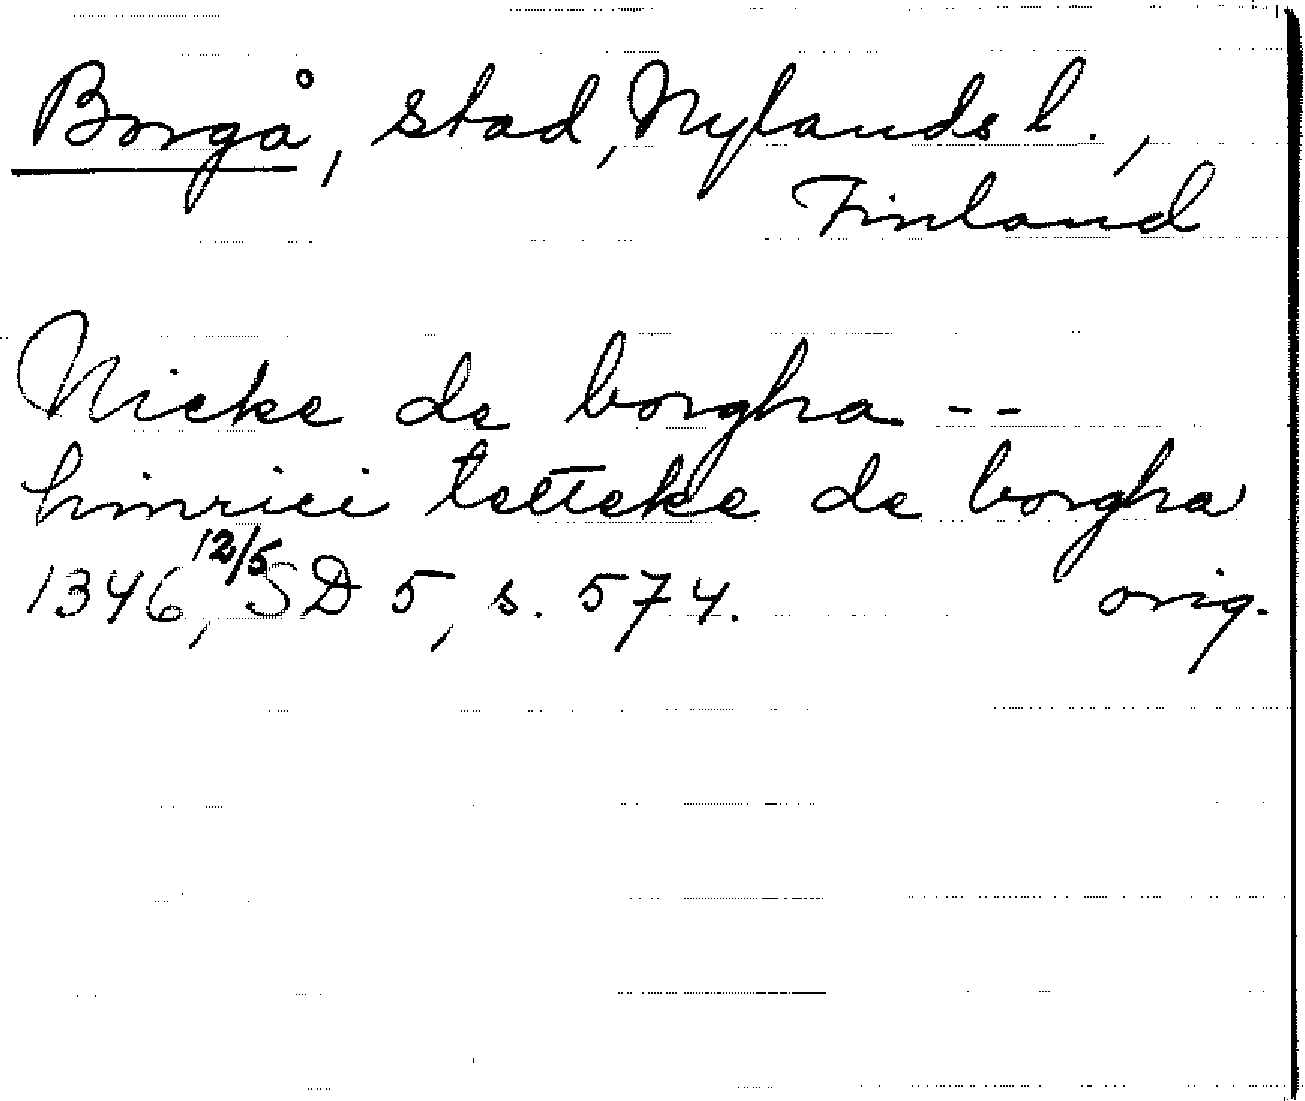 Borgå, stad, Nylands l.,
Finland
Nicke de borgha --
hinrici tetteke de borgha
1346, 12/5 SD 5, s. 574. orig.